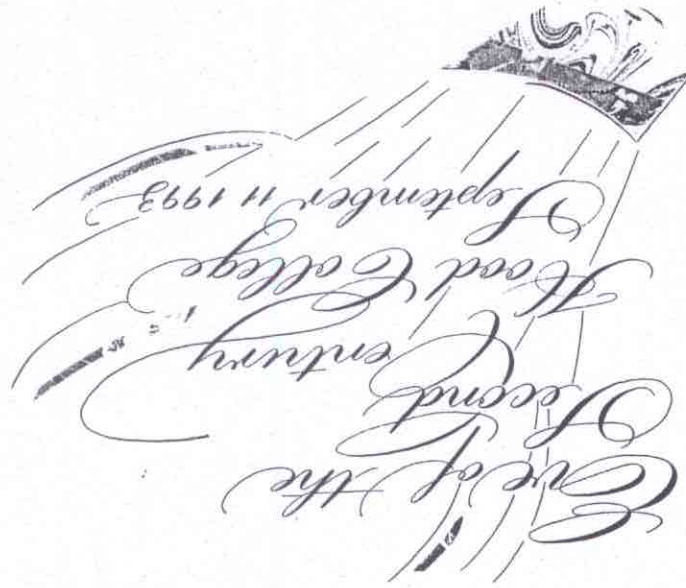 Eve of the
Second
Century
Hood College
September 11 1993